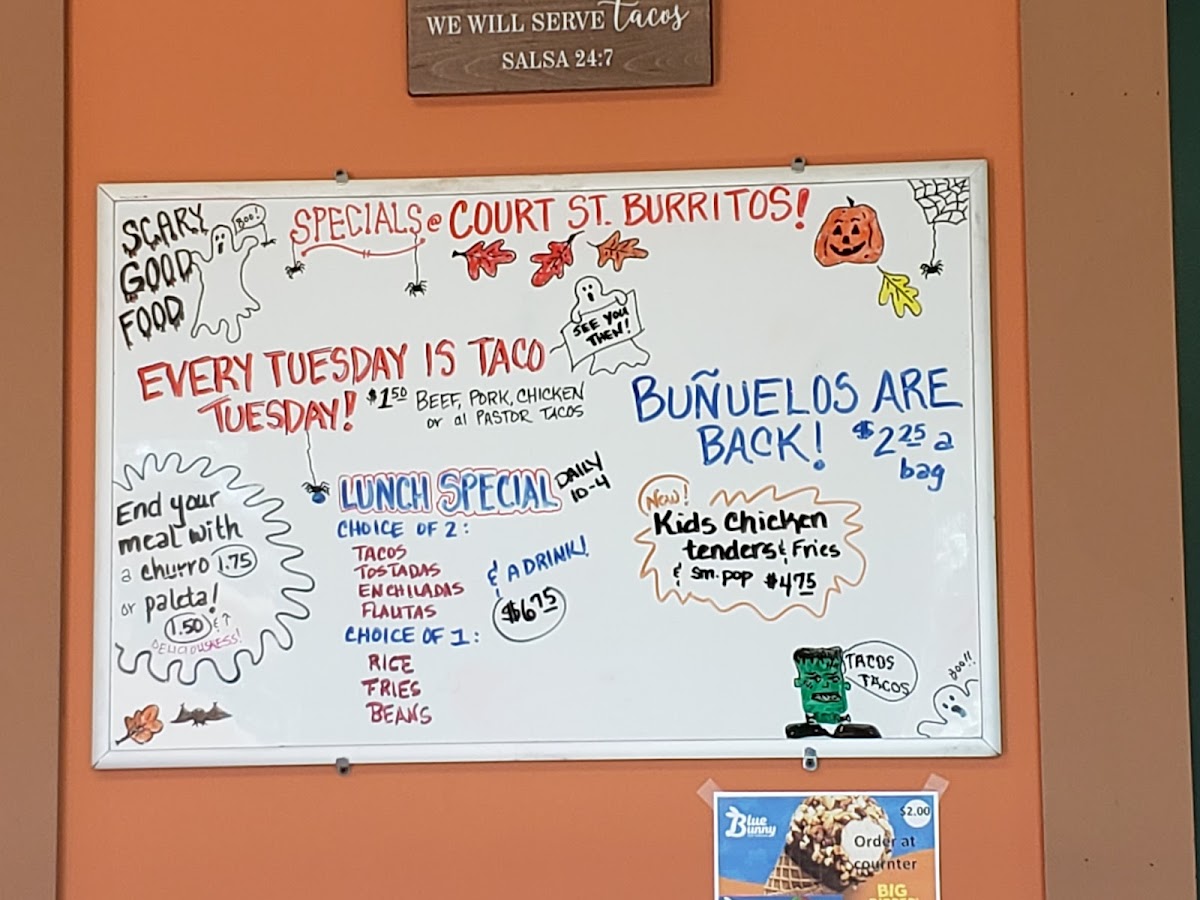 WE WILL SERVE tacos
SALSA 24:7
SCARY
GOOD
FOOD
BOO!
SPECIALS @ COURT ST. BURRITOS!
SEE YOU
THEN!
EVERY TUESDAY IS TACO
TUESDAY!
$1.50 BEEF, PORK, CHICKEN
or al PASTOR TACOS
BUÑUELOS ARE
BACK! $2.25 a
bag
End your
meal with
a churro 1.75
or paleta!
1.50 & ↑
DELICIOUSNESS!
LUNCH SPECIAL DAILY
10-4
CHOICE OF 2:
TACOS
TOSTADAS
ENCHILADAS
FLAUTAS
& A DRINK!
$6.75
CHOICE OF 1:
RICE
FRIES
BEANS
New!
Kids Chicken
tenders & Fries
& sm. pop $4.75
TACOS
TACOS
boo!!
Blue
Bunny
$2.00
Order at
cournter
BIG